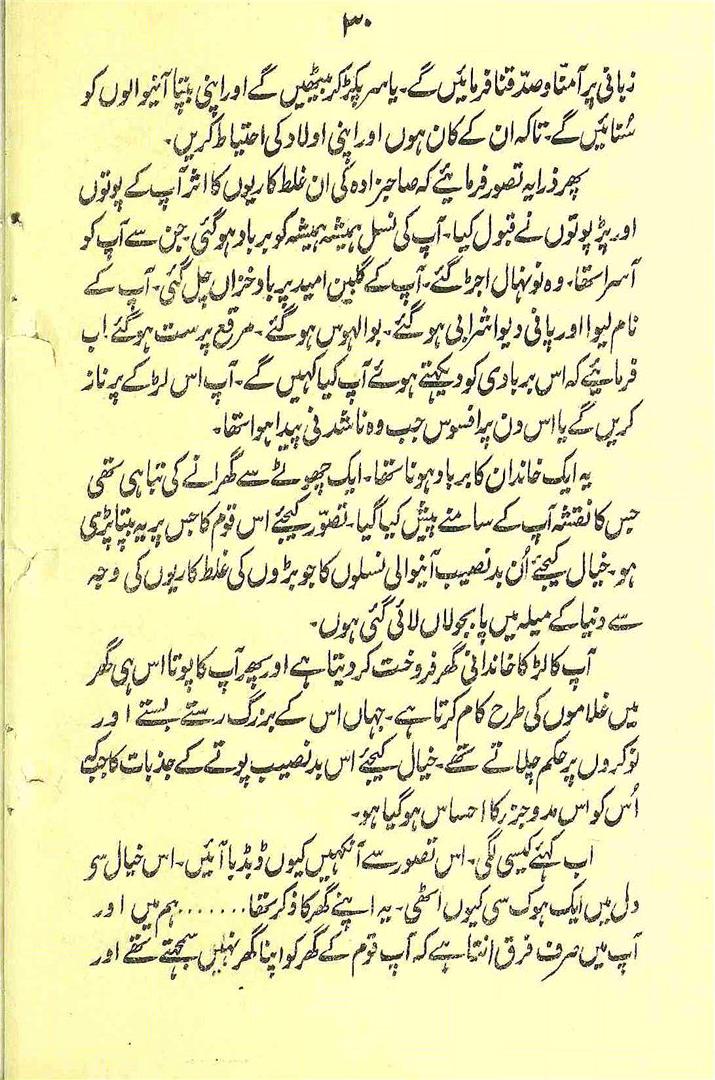 ۳۰
زبانی پر آمنّا و صدّقنا فرمائیں گے۔ یا سر پکڑ کر بیٹھیں گے اور اپنی بپتا آنیوالوں کو
سُنائیں گے۔ تاکہ ان کے کان ہوں اور اپنی اولاد کی احتیاط کریں۔
پھر ذرا یہ تصور فرمائیے کہ صاحبزادہ کی ان غلط کاریوں کا اثر آپ کے پوتوں
اور پڑپوتوں نے قبول کیا۔ آپ کی نسل ہمیشہ ہمیشہ کو برباد ہو گئی۔ جن سے آپ کو
آسرا تھا۔ وہ نونہال اجڑ گئے۔ آپ کے گلبن امید پر باد خزاں چل گئی۔ آپ کے
نام لیوا اور پانی دیوا شرابی ہو گئے۔ بوالہوس ہو گئے۔ مرقع پرست ہو گئے! اب
فرمائیے کہ اس بربادی کو دیکھتے ہوئے آپ کیا کہیں گے۔ آپ اس لڑکے پر ناز
کریں گے یا اس دن پر افسوس جب وہ ناشدنی پیدا ہوا تھا۔
یہ ایک خاندان کا برباد ہونا تھا۔ ایک چھوٹے سے گھرانے کی تباہی تھی
جس کا نقشہ آپ کے سامنے پیش کیا گیا۔ تصوّر کیجئے اس قوم کا جس پر یہ بپتا پڑی
ہو۔ خیال کیجئے اُن بدنصیب آنیوالی نسلوں کا جو بڑوں کی غلط کاریوں کی وجہ
سے دنیا کے میلہ میں پابجولاں لائی گئی ہوں۔
آپ کا لڑکا خاندانی گھر فروخت کر دیتا ہے اور پھر آپ کا پوتا اس ہی گھر
میں غلاموں کی طرح کام کرتا ہے۔ جہاں اس کے بزرگ رستے بستے اور
نوکروں پر حکم چلاتے تھے۔ خیال کیجئے اس بدنصیب پوتے کے جذبات کا جبکہ
اُس کو اس مدوجزر کا احساس ہو گیا ہو۔
اب کہئے کیسی لگی۔ اس تصور سے آنکھیں کیوں ڈبڈبا آئیں۔ اس خیال سے
دل میں ایک ہوک سی کیوں اٹھی۔ یہ اپنے گھر کا ذکر تھا....... ہم میں اور
آپ میں صرف فرق اتنا ہے کہ آپ قوم کے گھر کو اپنا گھر نہیں سمجھتے تھے اور